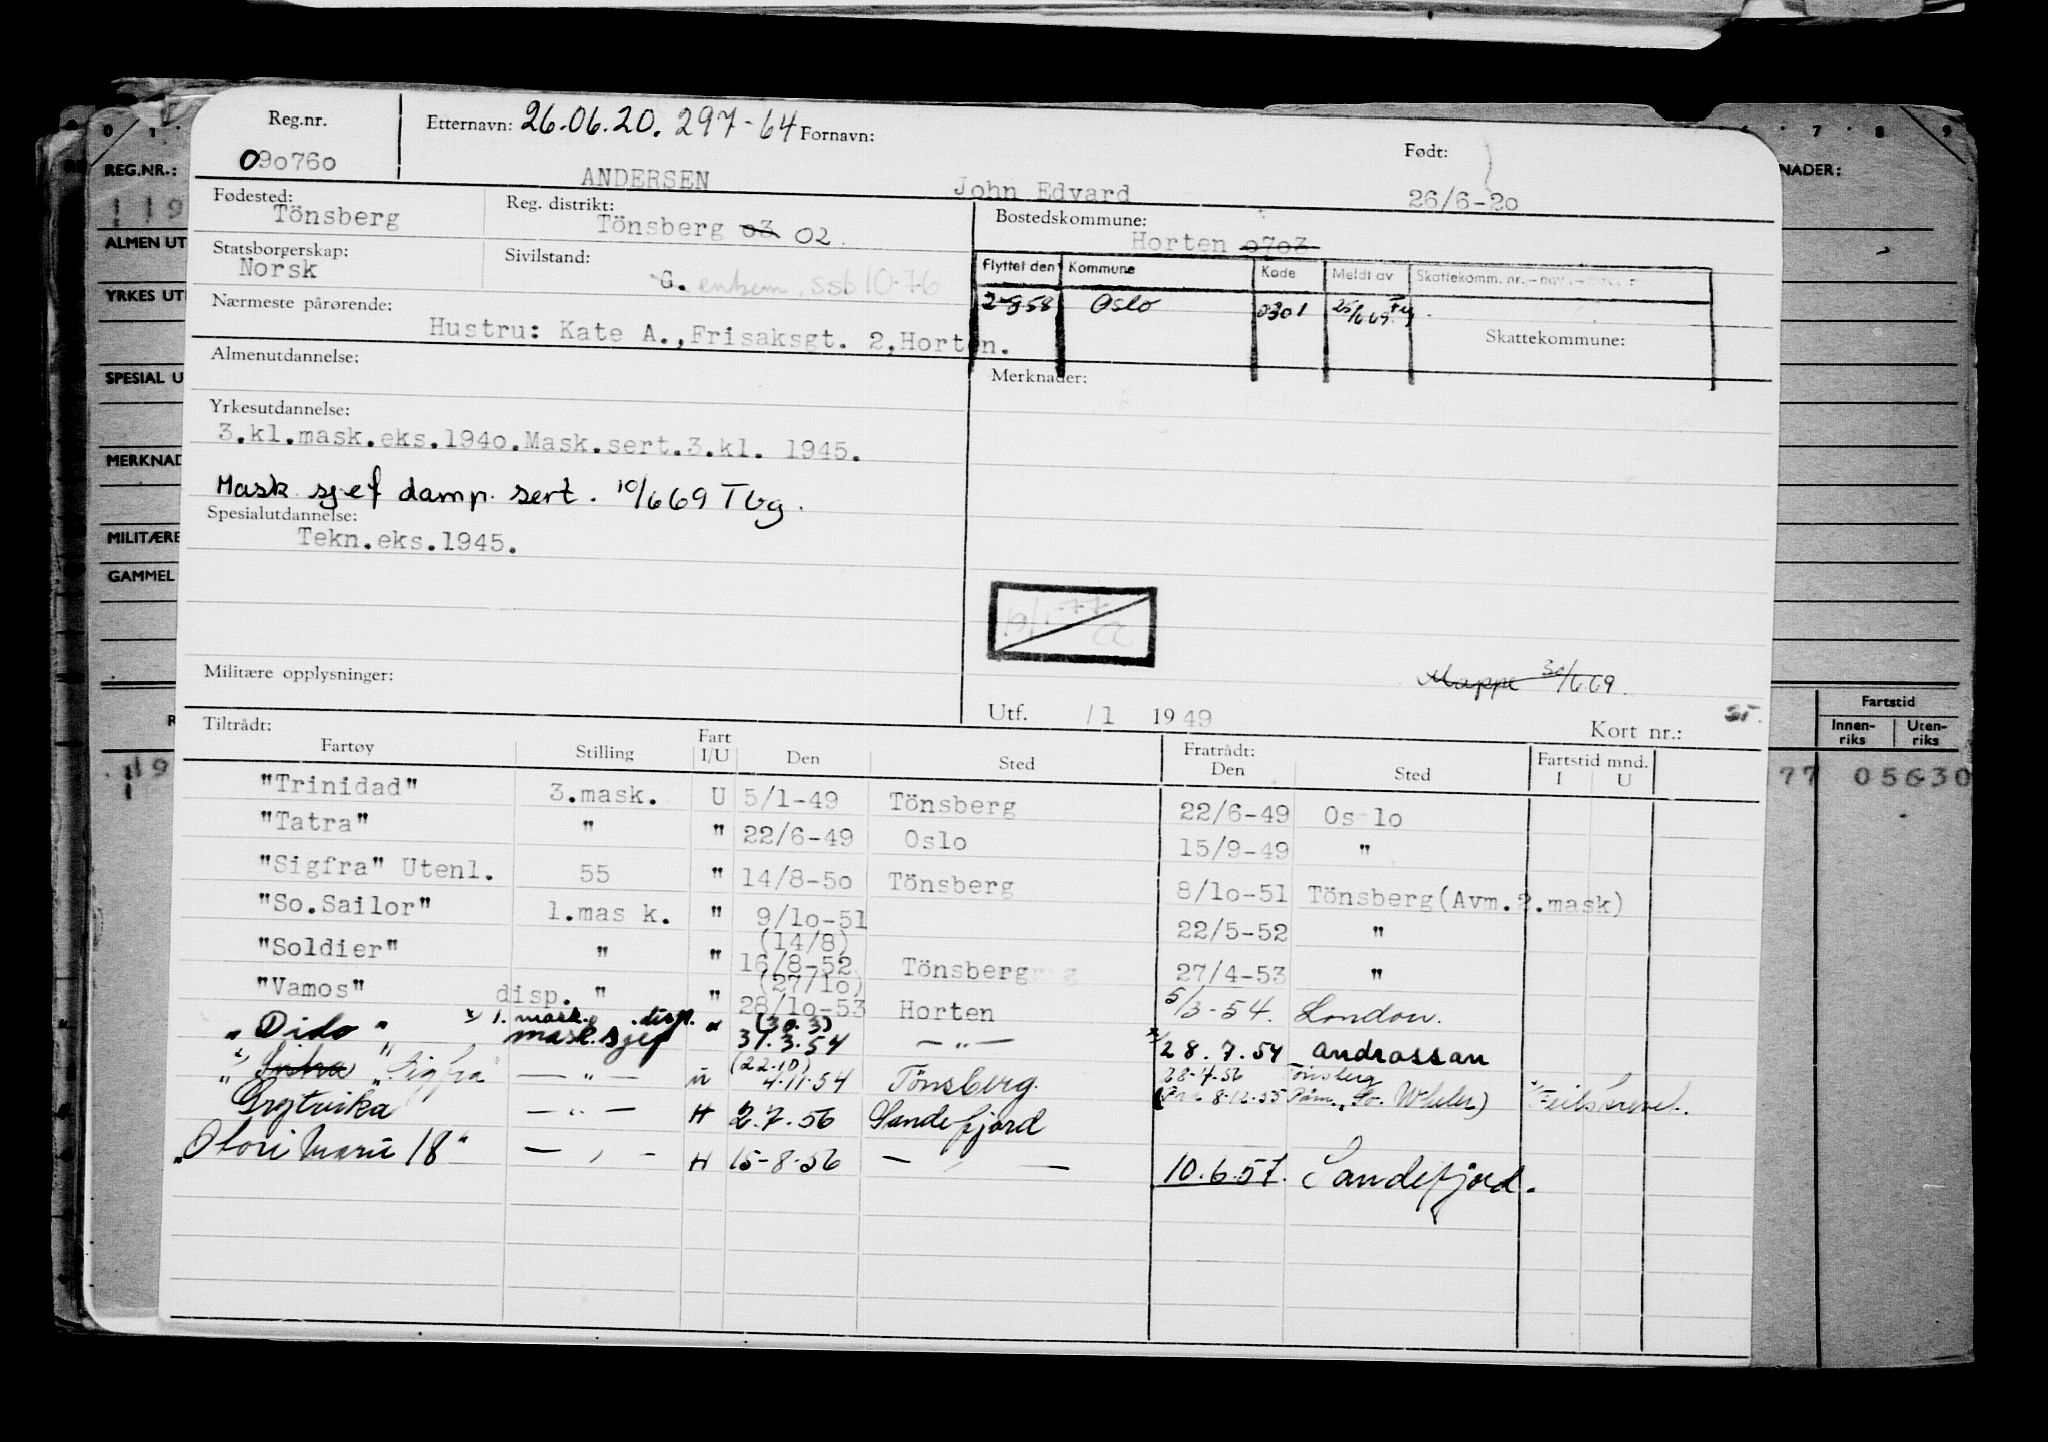 Reg.nr. Etternavn: 26.06.20. 297-64 Fornavn: Født:
090760 ANDERSEN John Edvard 26/6-20
Fødested: Reg. distrikt: Bostedskommune:
Tönsberg Tönsberg 03 02. Horten 0703
Statsborgerskap: Sivilstand:
Norsk G. enkem. ssb 10-76
Flyttet den Kommune Kode Meldt av Skattekomm. nr.
2-8 58 Oslo 0301 25/6 69
Nærmeste pårørende: Skattekommune:
Hustru: Kate A.,Frisaksgt. 2,Horten.
Almenutdannelse: Merknader:
Yrkesutdannelse:
3.kl.mask.eks.1940.Mask.sert.3.kl. 1945.
Mask sjef damp. sert. 10/6 69 Tbg.
Spesialutdannelse:
Tekn.eks.1945.
Militære opplysninger: Mappe 30/6 69.
Utf. /1 1949 Kort nr.:
Tiltrådt: Fratrådt:
Fartøy Stilling Fart I/U Den Sted Den Sted Fartstid mnd. I U
"Trinidad" 3.mask. U 5/1-49 Tönsberg 22/6-49 Oslo
"Tatra" " " 22/6-49 Oslo 15/9-49 "
"Sigfra" Utenl. 55 " 14/8-50 Tönsberg 8/10-51 Tönsberg(Avm.2.mask)
"So.Sailor" 1.mas k. " 9/10-51 22/5-52 "
(14/8)
"Soldier" " " 16/8-52 Tönsberg 27/4-53 "
(27/10)
"Vamos" disp. " " 28/10-53 Horten 5/3-54. London.
x) 1. mask. disp. (30.3)
"Dido" mask.sjef " 31.3.54 — " — x) 28.7.54 Androssan
(22.10) 28-4-56 Tönsberg
"Sigfra" — " — U 4.11.54 Tönsberg. (8-12-55 So. Whaler) x) Feilskrevet.
Grytvika — " — H 2.7.56 Sandefjord
"Otori Maru 18" — " — H 15-8-56 — " — 10.6.57. Sandefjord.
REG.NR.:
119
ALMEN UT
YRKES UT
SPESIAL U
MERKNAD
MILITÆRE
GAMMEL
NADER:
6 7 8 9
Fartstid
Innen-riks Uten-riks
77 05630